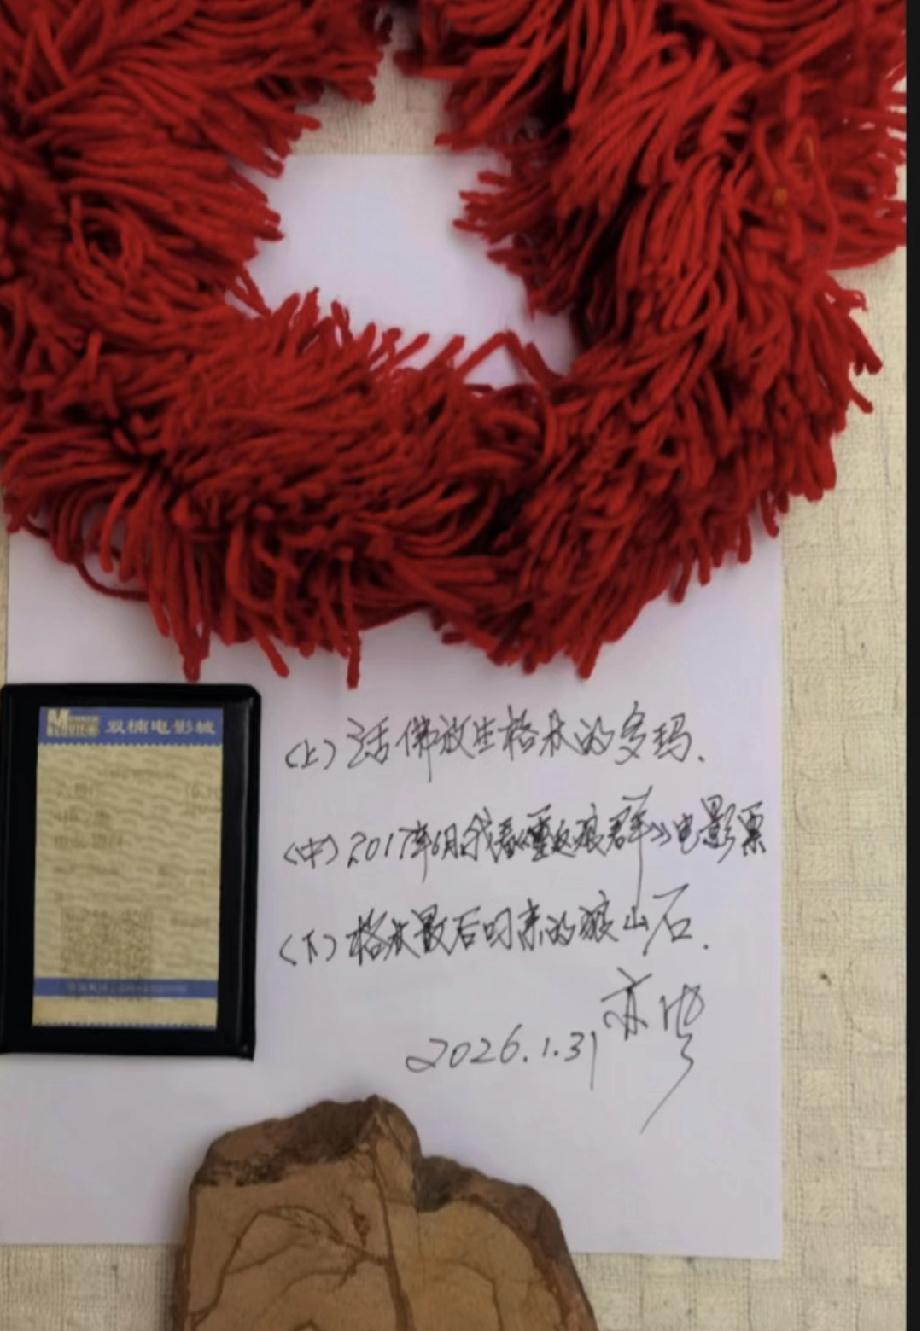 双楠电影城
(上)活佛放生格林的多玛.
(中)2017年6月我看《重返狼群》电影票
(下)格林最后叼来的狼山石.
亦风
2026.1.31